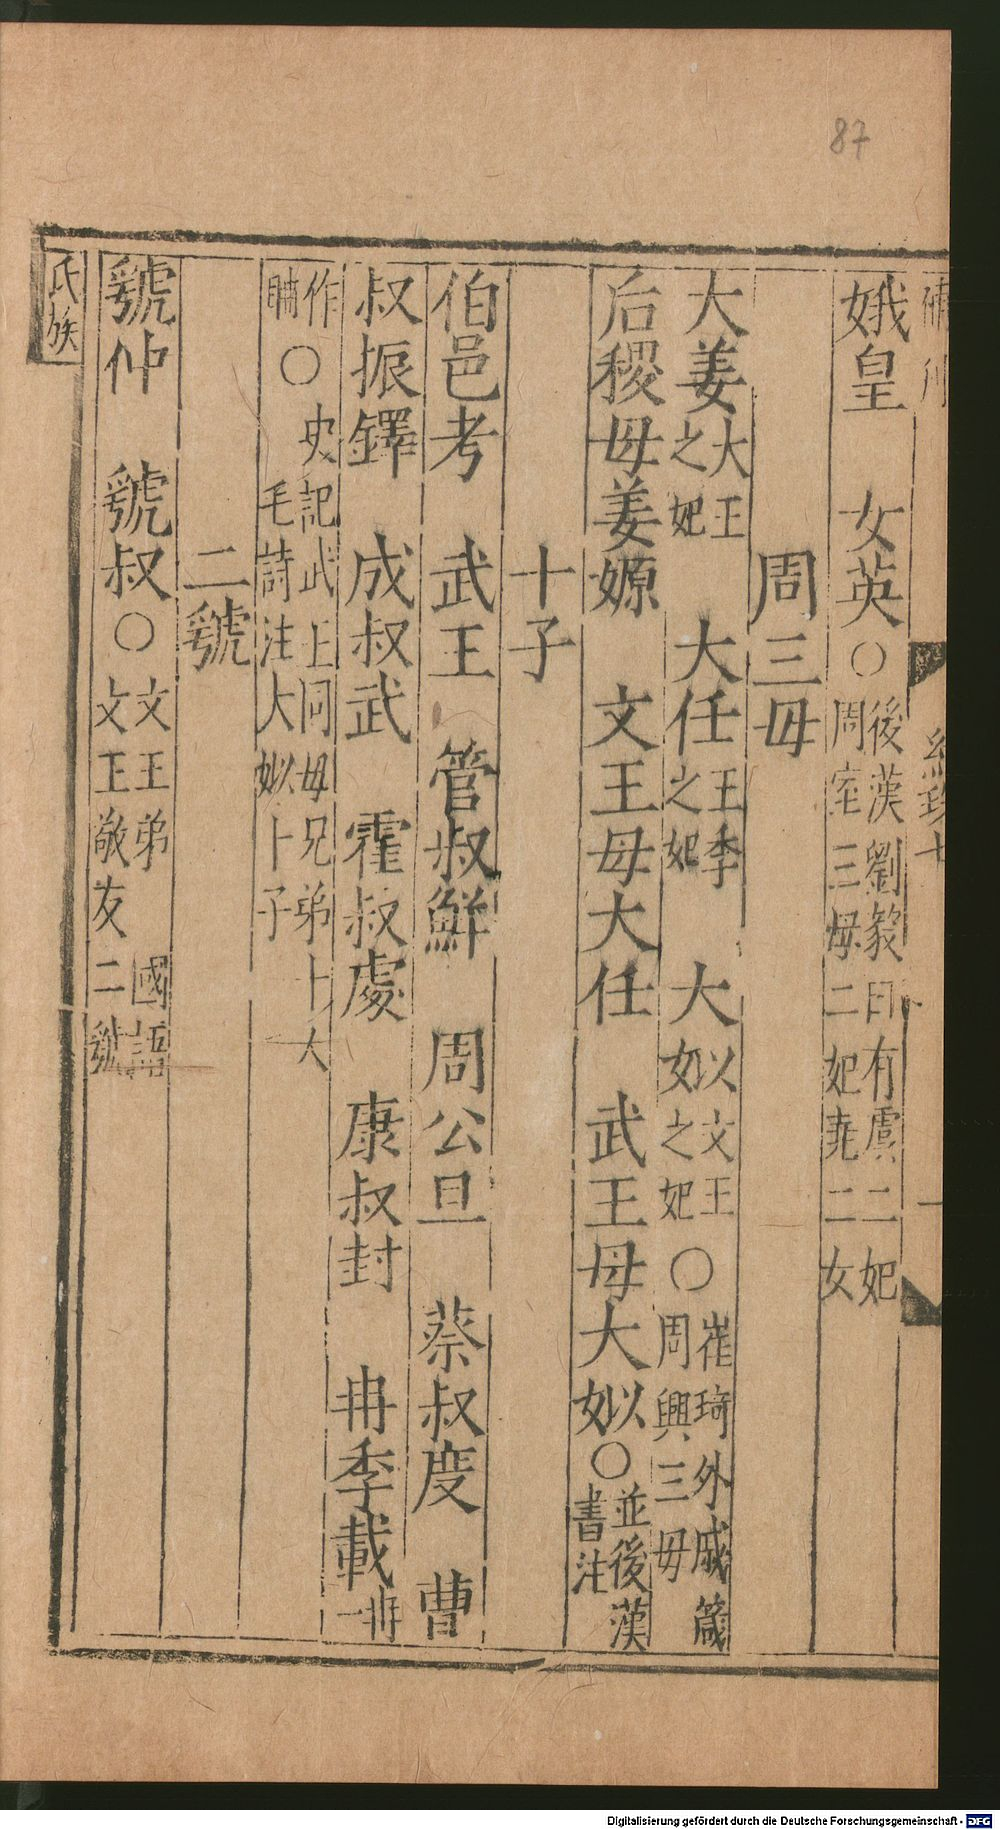 87
娥皇　女英○後漢劉毅曰有虞二妃周室三母二妃堯二女
周三母
大姜大王之妃　大任王季之妃　大姒文王之妃○崔琦外戚箴周興三毋
后稷母姜嫄　文王母大任　武王母大姒○並後漢書注
十子
伯邑考　武王　管叔鮮　周公旦　蔡叔度　曹
叔振鐸　成叔武　霍叔處　康叔封　冉季載冉一
作䎶○史記武王同母兄弟十人毛詩注大姒十子
二號
號仲　號叔○文王弟　國語文王敬友二號
氏族
Digitalisierung gefördert durch die Deutsche Forschungsgemeinschaft - DFG